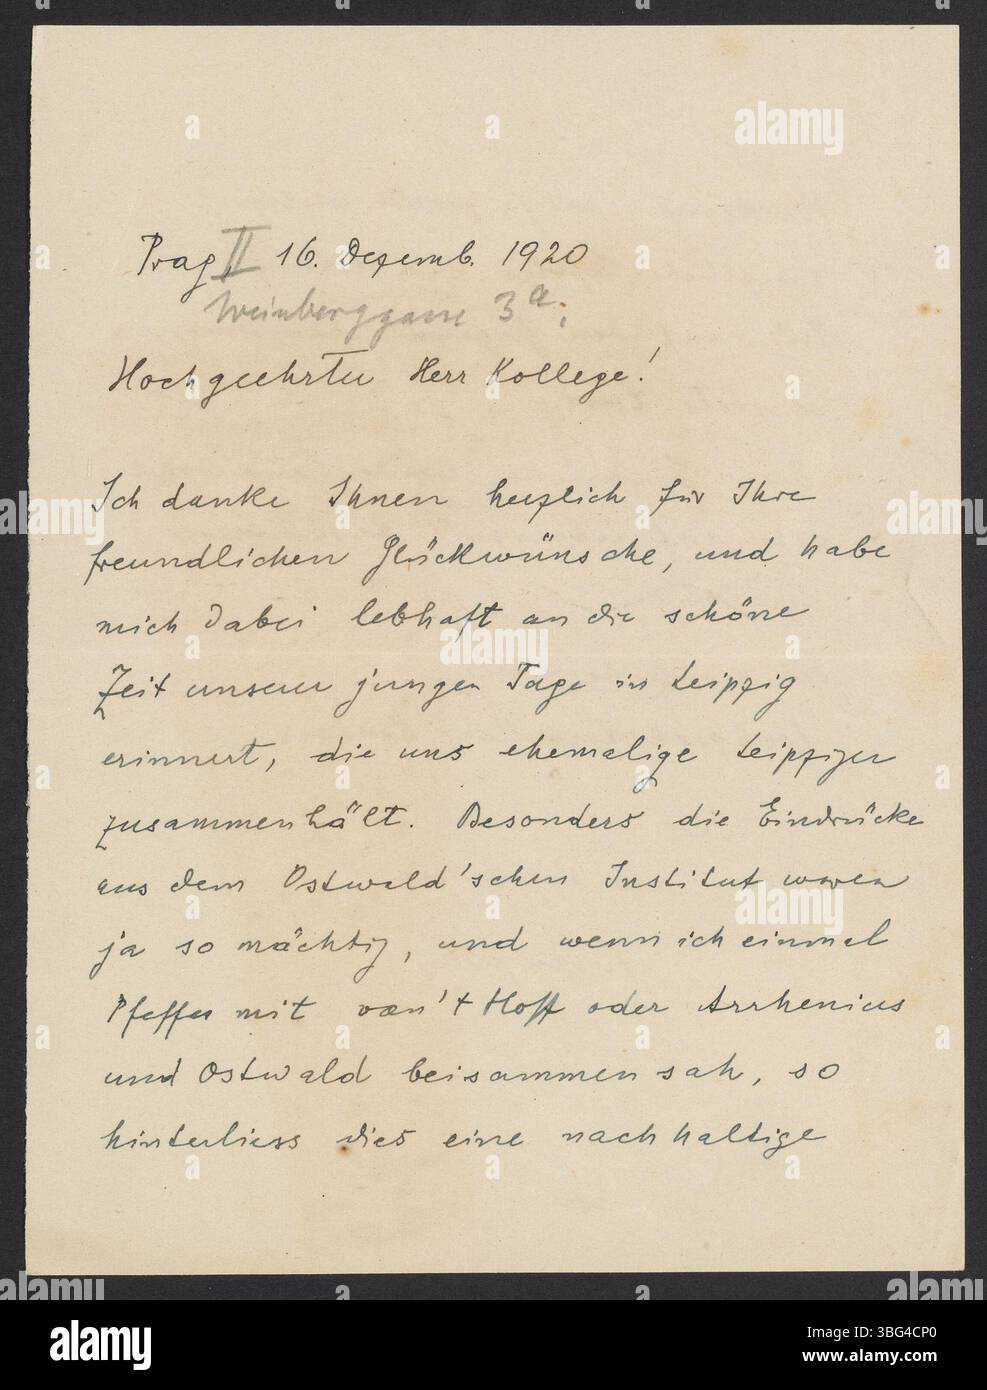 Prag, II 16. Dezemb. 1920
Weinberggasse 3a;
Hochgeehrter Herr Kollege!
Ich danke Ihnen herzlich für Ihre
freundlichen Glückwünsche, und habe
mich dabei lebhaft an die schöne
Zeit unserer jungen Tage in Leipzig
erinnert, die uns ehemalige Leipziger
zusammenhält. Besonders die Eindrücke
aus dem Ostwald'schen Institut waren
ja so mächtig, und wenn ich einmal
Pfeffer mit van't Hoff oder Arrhenius
und Ostwald beisammen sah, so
hinterliess dies eine nachhaltige
alamy
Image ID: 3BG4CP0
www.alamy.com